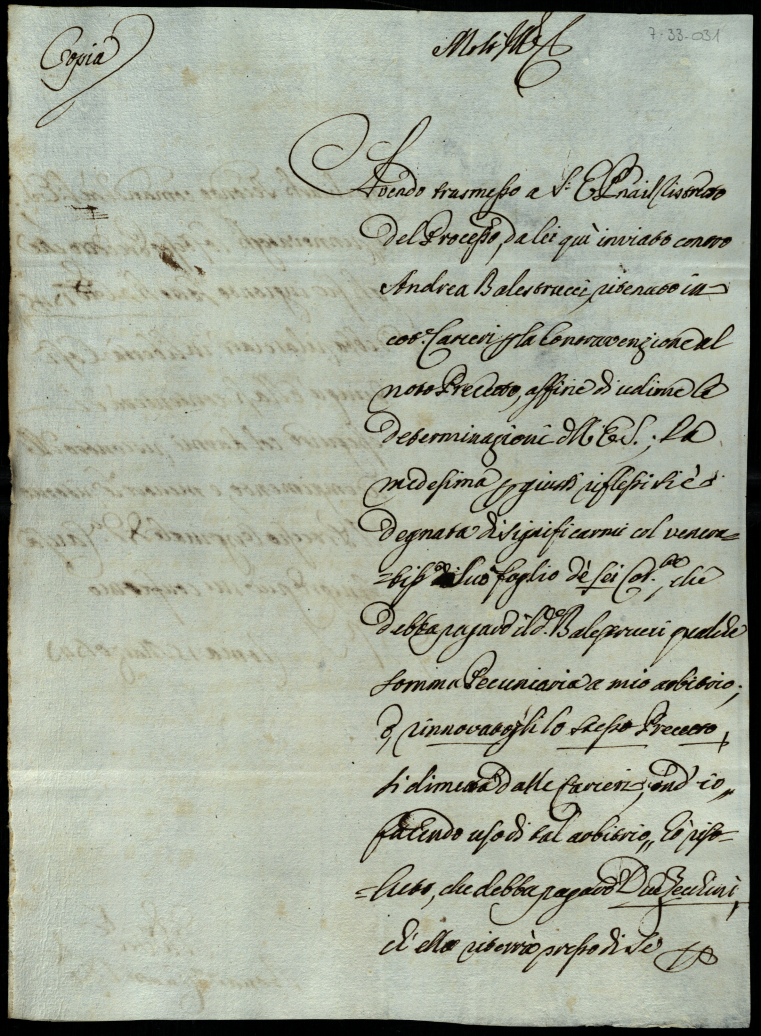 Copia
7-33-031
Avendo trasmesso a S. E. Pna il ristretto
del Processo, da lei quì inviato contro
Andrea Balestrucci, ritenuto in
cot.e Carceri p la Contravenzione al
noto Precetto, affine di udirne le
determinazioni dell'E. S.; La
medesima p giusti riflessi si è
degnata di significarmi col venera-
=tiss.o di Suo foglio de' sei Cor.te, che
debba pagare il d.o Balestrucci qualche
somma Pecuniaria a mio arbitrio;
e, rinnovatogli lo stesso Precetto,
si dimetta dalle Carceri; ond' io,,
facendo uso di tal arbitrio,, hò riso-
=luto, che debba pagare Due Zecchini,
ch' ella riterrà presso di Se